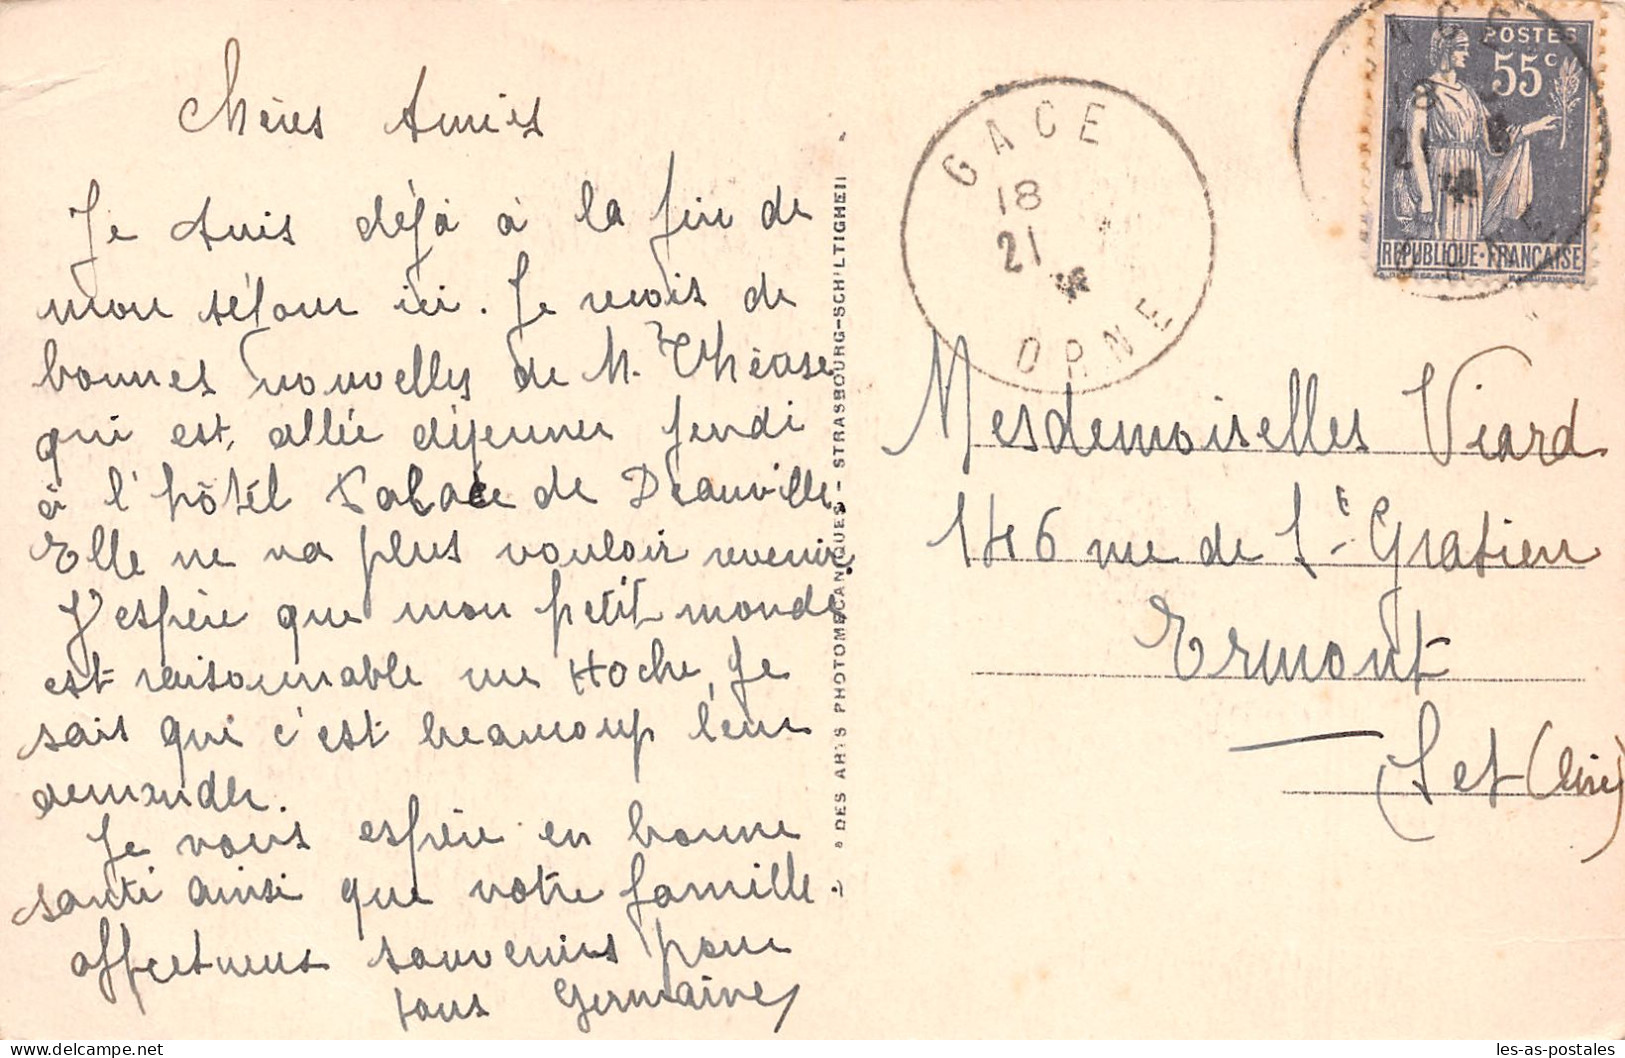 Chères Amies
Je suis déjà à la fin de
mon séjour ici. Je reçois de
bonnes nouvelles de M. Thérèse
qui est allée déjeuner jeudi
à l'hôtel Palace de Deauville
Elle ne va plus vouloir revenir
J'espère que mon petit monde
est raisonnable rue Hoche, je
sais que c'est beaucoup leur
demander.
Je vous espère en bonne
santé ainsi que votre famille
affectueux souvenirs pour
tous Germaine
DES ARTS PHOTOMECANIQUES - STRASBOURG-SCHILTIGHEIM
GACE
18
21
ORNE
POSTES
55c
REPUBLIQUE·FRANÇAISE
18
21
Mesdemoiselles Viard
146 rue de St Gratien
Ermont
(Set
les-as-postales